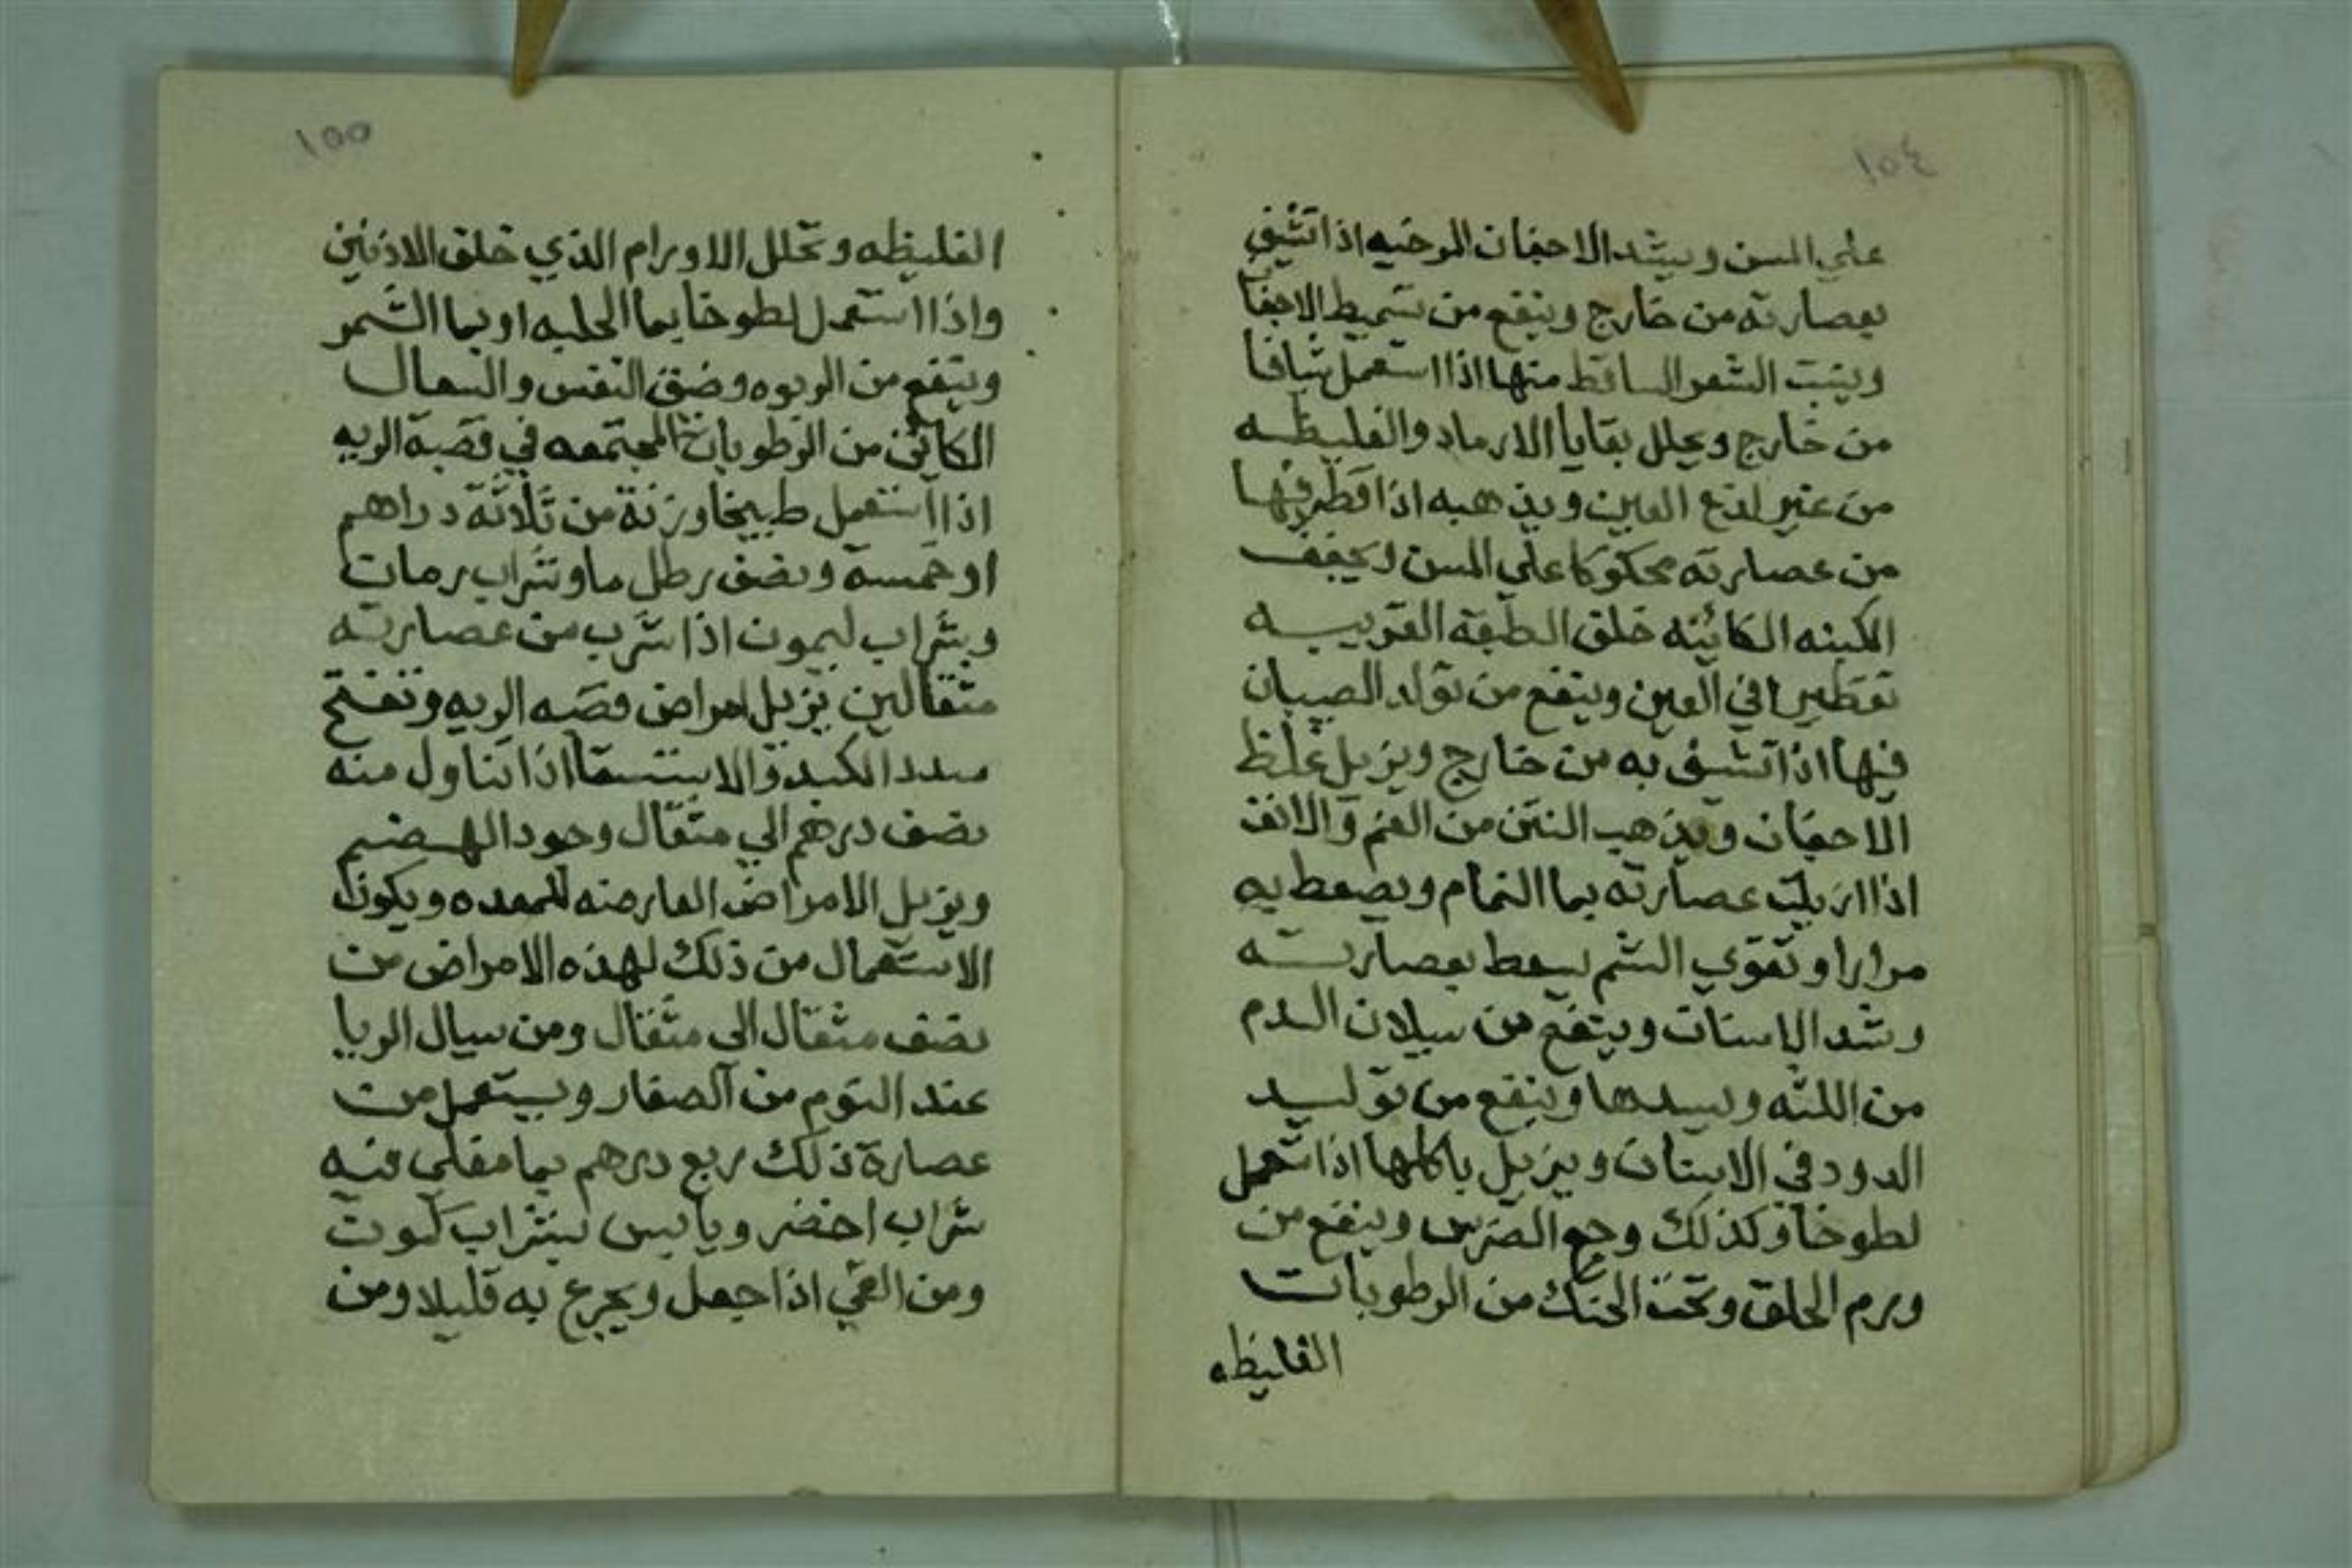 ١٥٤
علي المسن ويشد الاجفان المرخيه اذا تشيف
بعصارته من خارج وينفع من تسميط الاجفا
وينبت الشعر الساقط منها اذا استعمل شيافا
من خارج ويحلل بقايا الارماد والغليظه
من غير لدع العين ويذهبه اذا قطر فيها
من عصارته محكوكا علي المسن ويجفف
الكمنه الكائنه خلق الطبقه القرنيه
تقطيرا في العين وينفع من تولد الصيبان
فيها اذا تشيف به من خارج ويزيل غلظ
الاجفان ويذهب النتن من الفم والانف
اذا عصارته بما النمام ويصعط به
مرارا وتقوي الشم بسعط بعصارته
وشد الاسنان وينفع من سيلان الدم
من اللثه ويسدها وينفع من توليد
الدود في الاسنان ويزيل باكلها اذا تعمل
لطوخا وكذلك وجع الضرس وينفع من
ورم الحلق وتحت الحنك من الرطوبات
الغليظه
١٥٥
الغليظه وتحلل الاورام الذي خلق الاذنين
واذا استعمل لطوخا بما الحلبه او بما الشمر
وينفع من الربوه وضق النفس والسعال
الكائن من الرطوبات المجتمعه في قصبة الريه
اذا استعمل طبيخا وزنة من ثلاثة دراهم
او خمسة ونصف رطل ما وشراب رمان
وبشراب ليمون اذا شرب من عصارته
مثقالين يزيل امراض قصبه الريه وتفتح
سدد الكبد والاستسقا اذا تناول منه
نصف درهم الي مثقال وجود الهضم
ويزيل الامراض العارضه للمعده ويكون
الاستعمال من ذلك لهذه الامراض من
نصف مثقال الي مثقال ومن سيال الريا
عند النوم من الصغار ويستعمل من
عصارة ذلك ربع درهم بما مغلي فيه
شراب اخضر ويابس بشراب
ومن القي اذا جعل ويجرع به قليلا ومن